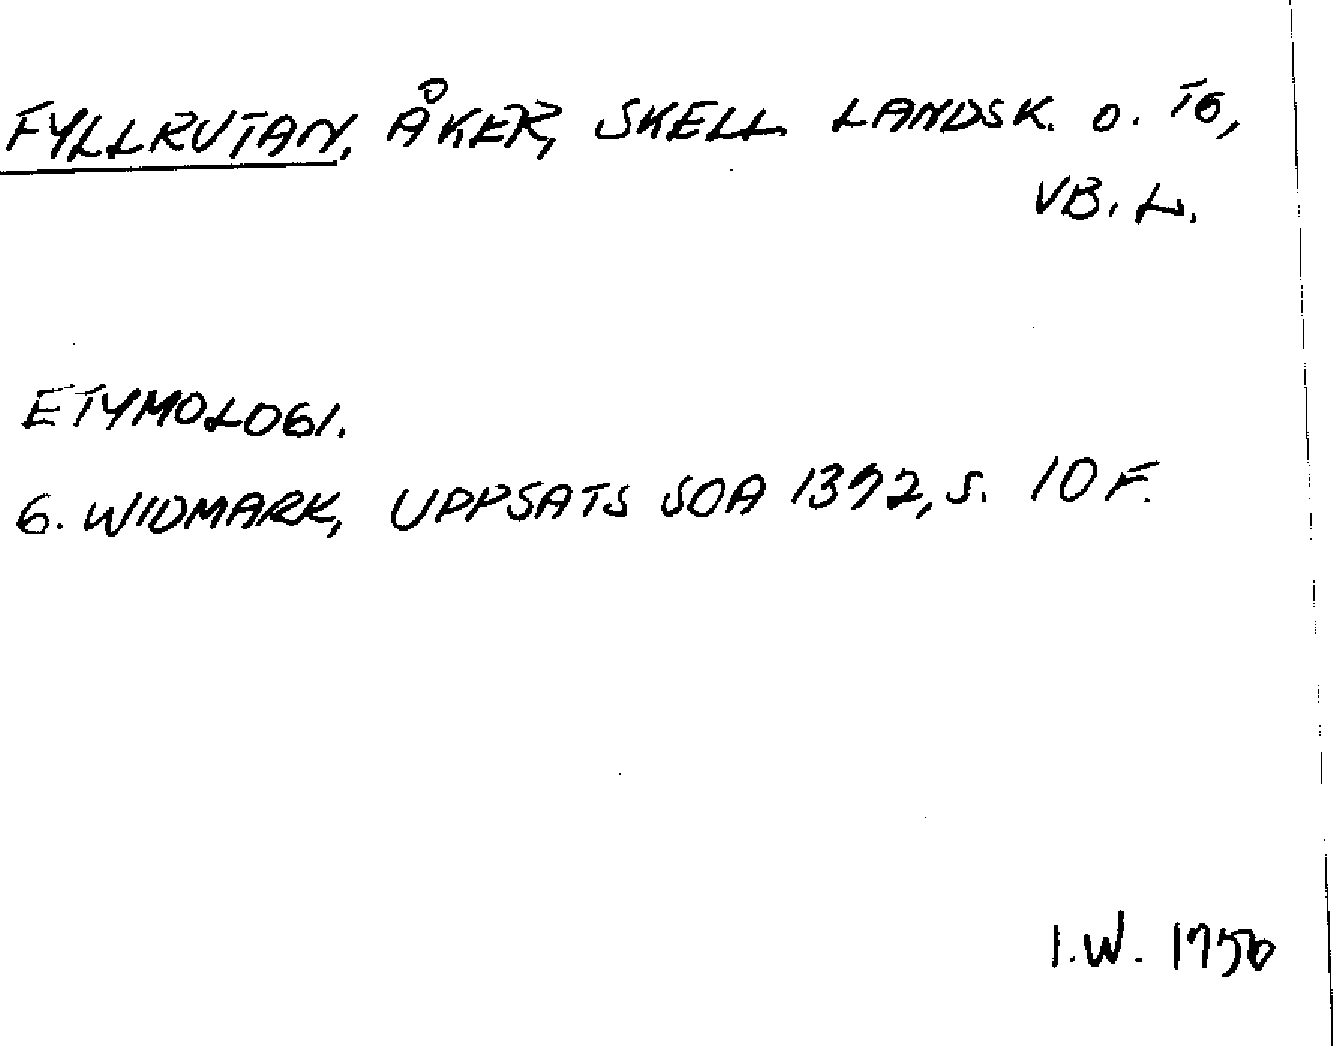 FYLLRUTAN, ÅKER, SKELL LANDSK. O. TG,
VB. L.
ETYMOLOGI.
G. WIDMARK, UPPSATS SOA 1392, S. 10 F.
I.W. 1956